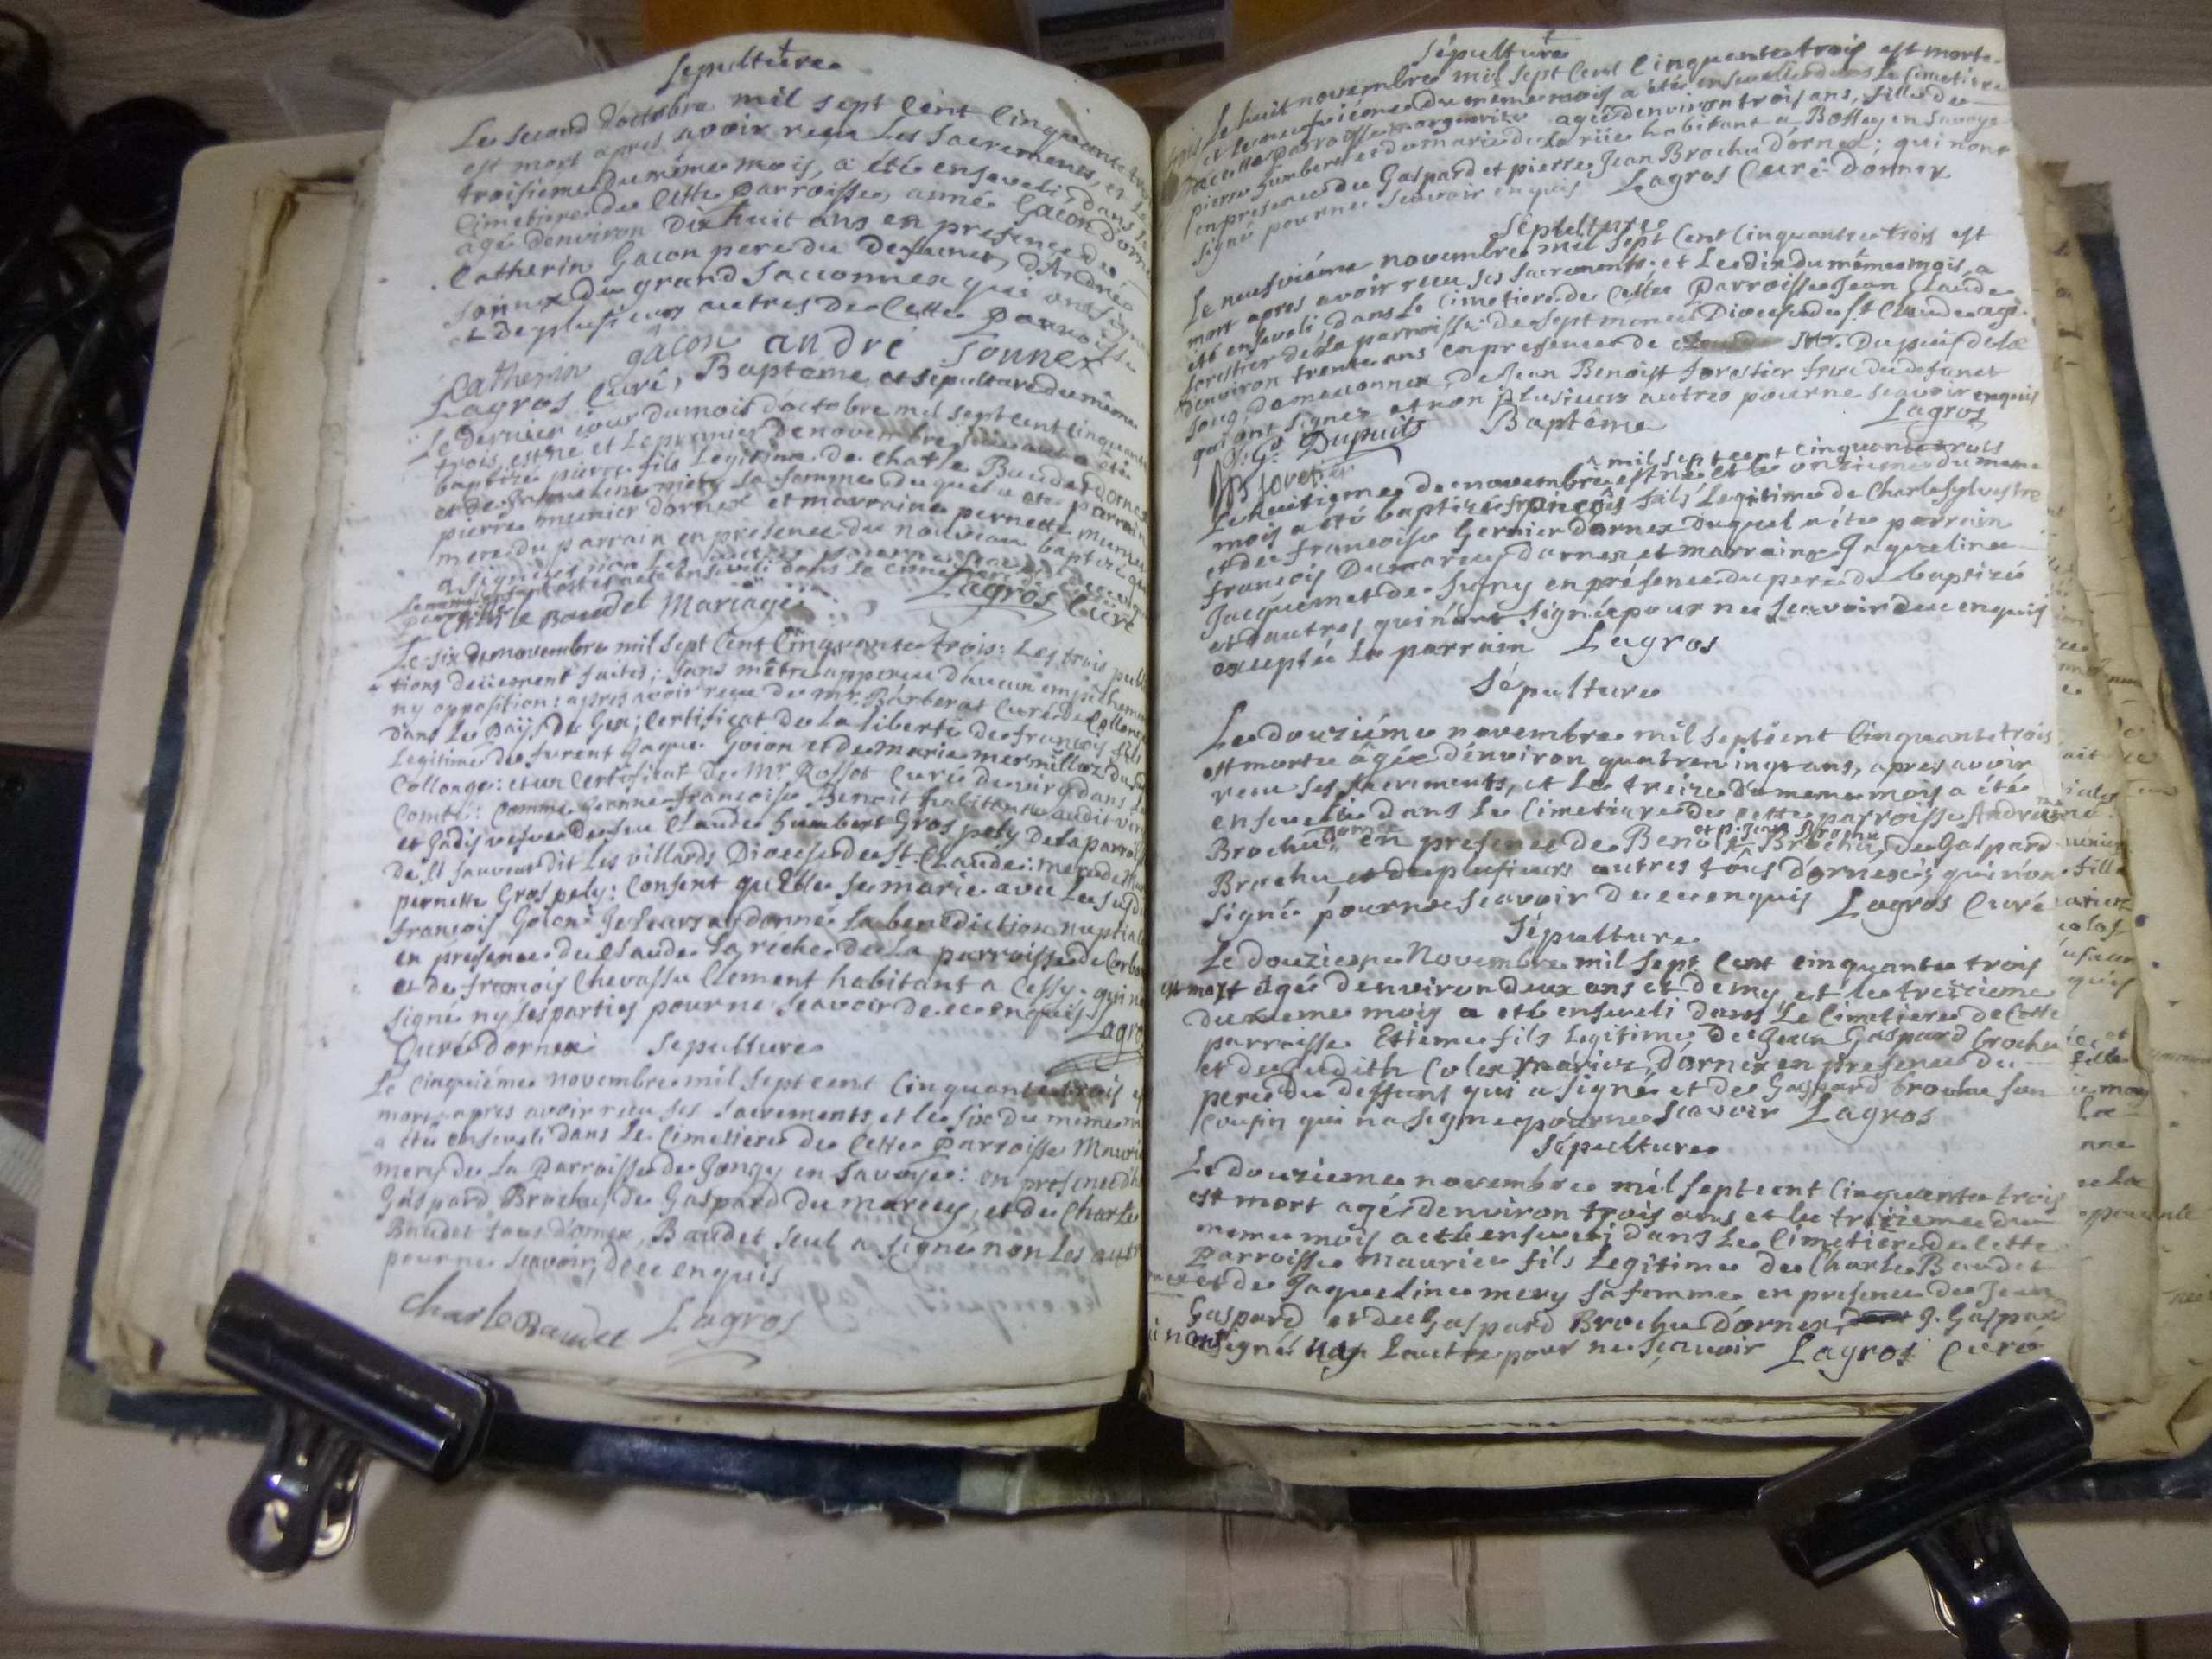 Sepulture
Le second d'octobre mil sept Cent Cinquante
est mort apres avoir reçu Les Sacremens, et Le
troisieme du même mois, a été enseveli dans Le
Cimetiere de Cette Parroisse, Gacon d'ornex
agé d'environ Dix huit ans en presence de
Catherin Gacon pere du Defunct, d'André
Sonnex du grand Saconnex qui ont signé
et De plusieurs autres de Cette Parroisse
Catherin gâcon andré Sonnex
Lagros Curé, Bapteme et sepulture du même
Le dernier iour du mois d'octobre mil sept cent cinquante
trois est né et Le premier de novembre a été
baptizé pierre fils Legitime de Charle Baudet d'ornex
et de mery sa femme Duquel a été parrain
pierre munier d'ornex et marraine pernette munier
mere du parrain en presence du nouveau baptizé qui
a signé et non les autres pour ne
a été enseveli dans Le cimetiere de
Charle Baudet Mariage Lagros Curé
Le six de novembre mil sept Cent Cinquante trois: Les trois
tions deuement faites; sans m'être apperçu d'aucun empêchement
ny opposition: apres avoir reçu de Mr. Barberat Curé de Collonge
dans Le Païs de Gex; Certificat de La Liberté de françois fils
Legitime de furent Jaque Goion et de marie mermilloz du
Collonge: et un Certificat De Mr. Rosset Curé de viry dans
Comté: Comme Jeanne françoise Benoit habitante audit viry
et Jadis vefve de feu Claude humbert Gros pely De La parroisse
De St Sauveur dit Les villards Diocese de St. Claude: mere de
pernette Gros pely: Consent qu'Elle se marie avec Le susdit
françois Goion: Je Leurs ay donné La benediction nuptiale
en presence de Claude La reche de La parroisse de
et de françois Chevassu Clement habitant a Cessy. qui
signé ny Les parties pour ne sçavoir de ce enquis Lagros
Curé d'ornex Sepulture
Le Cinquiéme novembre mil sept cent Cinquante trois
mort apres avoir reçu ses sacrements, et le six du meme
a été enseveli dans Le Cimetiere de Cette Parroisse Mauri
mery de La Parroisse de Jongy en Savoye: en presence
Gaspard Brochu, de Gaspard du marcey, et de Charle
Baudet tous d'ornex, Baudet seul a signé non Les autres
pour ne sçavoir, de ce enquis
Charle Baudet Lagros
Sépulture
Le huit novembre mil sept Cent Cinquante trois est morte
et Le neufviéme du même mois a été ensevelie dans Le Cimetiere
de cette parroisse marguerite agée d'environ trois ans, fille de
pierre humbert et de marie de La rüe habitant a Bossey en Savoye
en presence de Gaspard et pierre Jean Brochu d'ornex; qui n'ont
signé pour ne sçavoir enquis Lagros Curé d'ornex
Sépulture
Le neufviéme novembre mil sept Cent Cinquante trois est
mort apres avoir reçu ses sacrements, et Le dix du même mois, a
été enseveli dans Le Cimetiere de Cette Parroisse Jean Claude
forestier de La parroisse de Septmoncel Diocese de St Claude agé
d'environ trente ans en presence de Mr. Dupuis de La
de Jean Benoist forestier frere du defunct
qui ont signez et non plusieurs autres pour ne sçavoir enquis
J. G. Dupuits Baptême Lagros
mil sept cent cinquante trois
Le huitieme de novembre est né et le onzieme du meme
mois a été baptizé françois fils Legitime de Charle Sylvestre
et de françoise Gernier d'ornex duquel a été parrain
francois Dumarcey d'ornex et marraine Jaqueline
Jacquemet de Signy en présence du pere du baptizé
et d'autres qui n'ont signé pour ne sçavoir de ce enquis
excepté Le parrain Lagros
Sépulture
Le douziéme novembre mil sept cent Cinquante trois
est morte âgée d'environ quatre vingt ans, apres avoir
reçu ses sacrements, et Le treize du meme mois a été
ensevelie dans Le Cimetiere de Cette parroisse Andréanne
Brochu d'ornex en presence de Benoist Brochu, et p. Jean Brochu de Gaspard
Brochu, et de plusieurs autres tous d'ornex; qui n'ont
signé pour ne sçavoir de ce enquis Lagros Curé
Sépulture
Le douzieme Novembre mil sept Cent cinquante trois
est mort agé d'environ deux ans et demy, et le treizieme
du meme mois a été enseveli dans Le Cimetiere de Cette
parroisse Etiene fils Legitime de Jean Gaspard brochu
et de Judith Colex mariez, d'ornex en presence du
pere du deffunt qui a signé et de Gaspard brochu son
Cousin qui n'a signé pour ne sçavoir Lagros
Sépulture
Le douzieme novembre mil sept cent Cinquante trois
est mort agé d'environ trois ans et le treizieme du
meme mois a été enseveli dans Le Cimetiere de Cette
Parroisse Maurice fils Legitime de Charle Baudet
et de Jaqueline mery sa femme en presence de Jean
Gaspard et de Gaspard Brochu d'ornex, J. Gaspard
signé L'autre pour ne sçavoir Lagros Curé